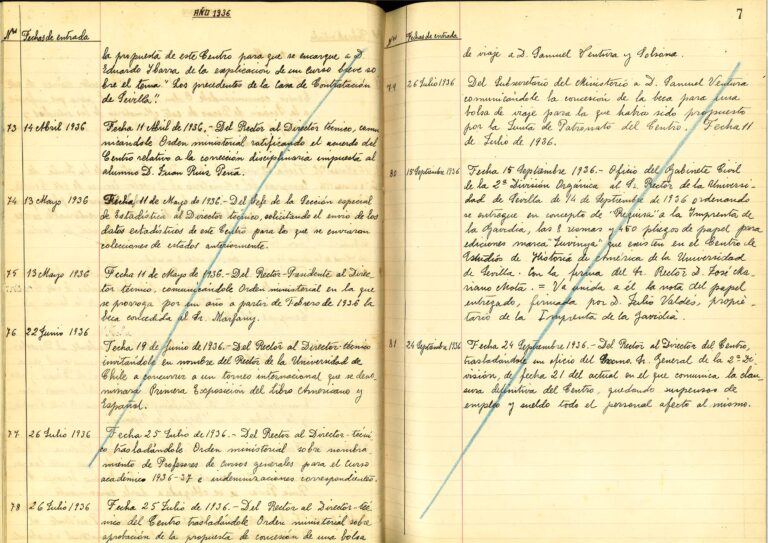 AÑO 1936
Nos Fechas de entrada
la propuesta de este Centro para que se encargue a D.
Eduardo Ibarra de la explicación de un curso breve so
bre el tema "Los precedentes de la Casa de Contratación
de Sevilla".
73 14 Abril 1936 Fecha 11 Abril de 1936.- Del Rector al Director técnico, comu
nicándole Orden ministerial ratificando el acuerdo del
Centro relativo a la corrección disciplinaria impuesta al
alumno D. Juan Ruiz Peña.
74 13 Mayo 1936 Fecha 11 de Mayo de 1936.- Del Jefe de la Sección especial
de Estadística al Director técnico, solicitando el envío de los
datos estadísticos de este Centro para lo que se enviaron
colecciones de estados anteriormente.
75 13 Mayo 1936 Fecha 11 de Mayo de 1936.- Del Rector-Presidente al Direc-
tor técnico, comunicándole Orden ministerial en la que
se prorroga por un año a partir de Febrero de 1936 la
beca concedida al Sr. Marfany.
76 22 Junio 1936
Fecha 19 de Junio de 1936.- Del Rector al Director técnico
invitándole en nombre del Rector de la Universidad de
Chile a concurrir a un torneo internacional que se deno-
minará Primera Exposición del Libro Americano y
Español.
77 26 Julio 1936 Fecha 25 Julio de 1936.- Del Rector al Director-técni
co trasladándole Orden ministerial sobre nombra
miento de Profesores de cursos generales para el curso
académico 1936-37 e indemnizaciones correspondientes.
78 26 Julio 1936 Fecha 25 Julio de 1936.- Del Rector al Director-téc
nico del Centro trasladándole Orden ministerial sobre
aprobación de la propuesta de concesión de una bolsa
7
Nos Fechas de entrada
de viaje a D. Samuel Ventura y Solsona.
79 26 Julio 1936 Del Subsecretario del Ministerio a D. Samuel Ventura
comunicándole la concesión de la beca para una
bolsa de viaje para la que había sido propuesto
por la Junta de Patronato del Centro. Fecha 11
de Julio de 1936.
80 15 Septiembre 1936 Fecha 15 Septiembre 1936.- Oficio del Gabinete Civil
de la 2ª División Orgánica al Sr. Rector de la Universi-
dad de Sevilla de 14 de Septiembre de 1936 ordenando
se entregue en concepto de "Requisa" a la Imprenta de
la Gavidia, las 8 resmas y 450 pliegos de papel para
ediciones marca que existen en el Centro de
Estudios de Historia de América de la Universidad
de Sevilla. Con la firma del Sr. Rector D. José Ma-
riano Mota. = Va unida a él la nota del papel
entregado, firmada por D. Julio Valdés, propie-
tario de la Imprenta de la Gavidia.
81 24 Septiembre 1936 Fecha 24 Septiembre 1936.- Del Rector al Director del Centro,
trasladándole un oficio del Excmo. Sr. General de la 2ª Di-
visión, de fecha 21 del actual en el que comunica la clau
sura definitiva del Centro, quedando suspensos de
empleo y sueldo todo el personal afecto al mismo.